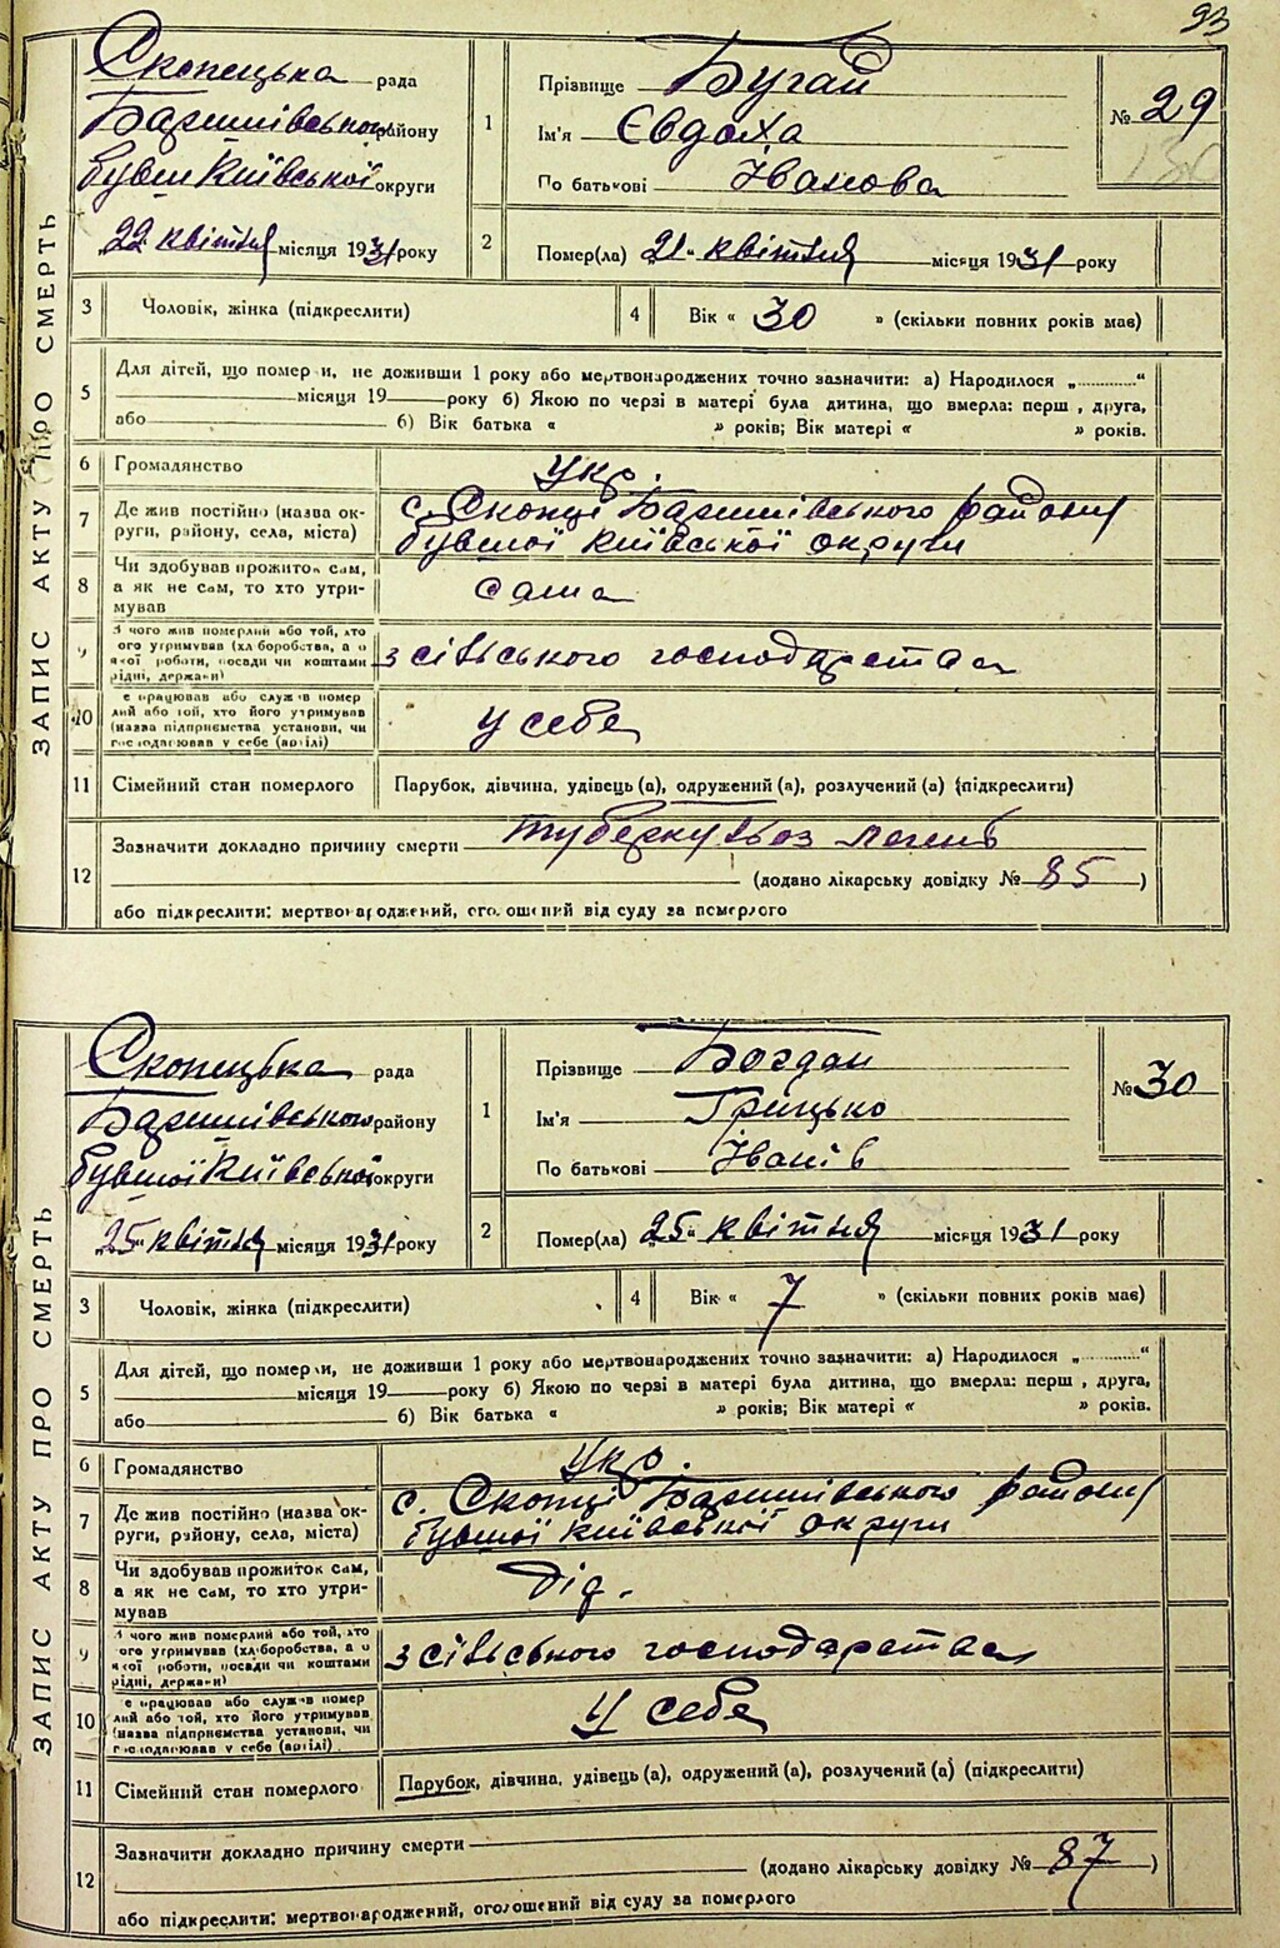 93
ЗАПИС АКТУ ПРО СМЕРТЬ
Скопецька рада
Баришівського району
бувш Київської округи
„22" квітня місяця 1931 року
1
Прізвище Бугай
Ім'я Євдоха
По батькові Іванова
№ 29
130
2
Помер(ла) „21" квітня місяця 1931 року
3 Чоловік, жінка (підкреслити)
4 Вік « 30 » (скільки повних років має)
5 Для дітей, що померли, не доживши 1 року або мертвонароджених точно зазначити: а) Народилося „ “
місяця 19 року б) Якою по черзі в матері була дитина, що вмерла: перш , друга,
або б) Вік батька « » років; Вік матері « » років.
6 Громадянство Укр.
7 Де жив постійно (назва округи, району, села, міста) с. Скопці Баришівського району
бувшої Київської округи
8 Чи здобував прожиток сам,
а як не сам, то хто утри-
мував
сама
9 З чого жив померлий або той, хто
ого утримував (хл боробства, а о
якої роботи, посади чи коштами
рідні, держави)
з сільського господарства
10 е працював або служив помер
лий або той, хто його утримував
(назва підприємства установи, чи
господарював у себе (артілі)
у себе
11 Сімейний стан померлого Парубок, дівчина, удівець (а), одружений (а), розлучений (а) (підкреслити)
12 Зазначити докладно причину смерти туберкульоз легенів
(додано лікарську довідку № 85 )
або підкреслити: мертвонароджений, оголошений від суду за померлого
ЗАПИС АКТУ ПРО СМЕРТЬ
Скопецька рада
Баришівського району
бувшої Київської округи
„25" квітня місяця 1931 року
1
Прізвище Богдан
Ім'я Грицько
По батькові Іванів
№ 30
2
Помер(ла) „25" квітня місяця 1931 року
3 Чоловік, жінка (підкреслити)
4 Вік « 7 » (скільки повних років має)
5 Для дітей, що померли, не доживши 1 року або мертвонароджених точно зазначити: а) Народилося „ “
місяця 19 року б) Якою по черзі в матері була дитина, що вмерла: перш , друга,
або б) Вік батька « » років; Вік матері « » років.
6 Громадянство Укр.
7 Де жив постійно (назва округи, району, села, міста) с. Скопці Баришівського району
бувшої Київської округи
8 Чи здобував прожиток сам,
а як не сам, то хто утри-
мував
Дід.
9 З чого жив померлий або той, хто
ого утримував (хл боробства, а о
якої роботи, посади чи коштами
рідні, держави)
з сільського господарства
10 е працював або служив помер
лий або той, хто його утримував
(назва підприємства установи, чи
господарював у себе (артілі)
у себе
11 Сімейний стан померлого Парубок, дівчина, удівець (а), одружений (а), розлучений (а) (підкреслити)
12 Зазначити докладно причину смерти
(додано лікарську довідку № 87 )
або підкреслити: мертвонароджений, оголошений від суду за померлого